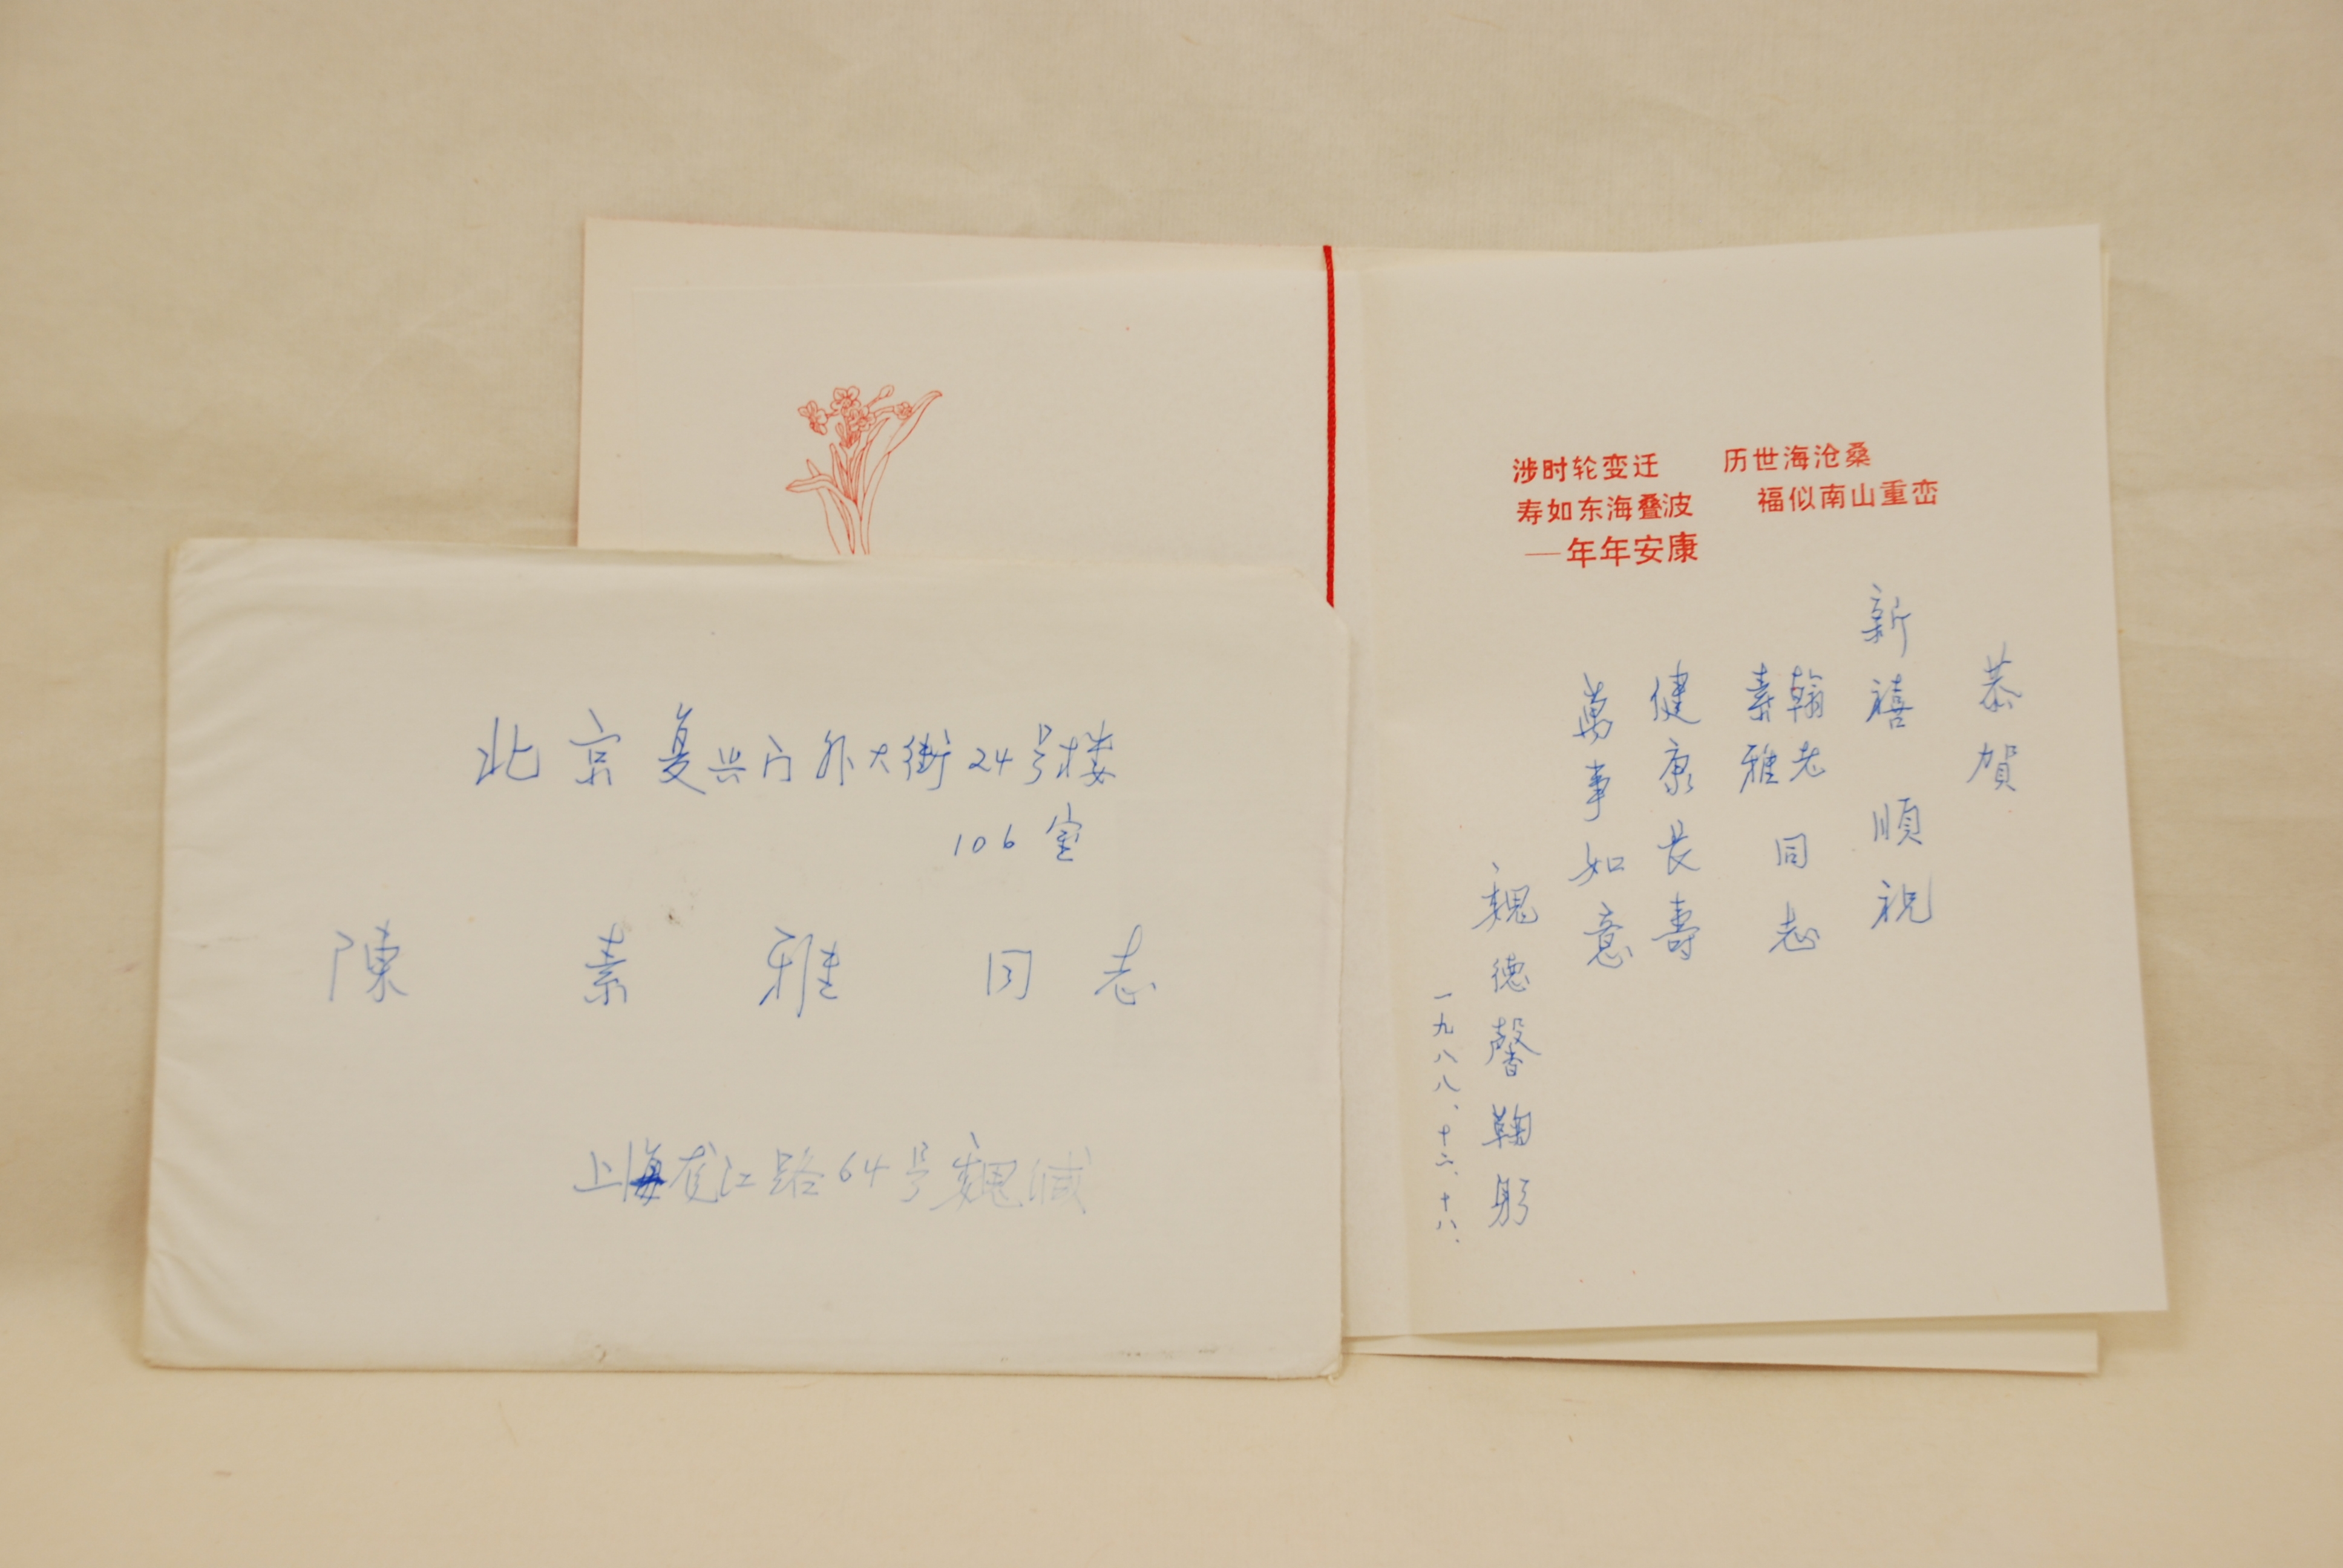 北京复兴门外大街24号楼
106室
陳素雅同志
上海 江路64号魏缄
涉时轮变迁 历世海沧桑
寿如东海叠波 福似南山重峦
—年年安康
恭賀
新禧 順祝
翰老
素雅 同志
健康長壽
萬事如意
魏德馨鞠躬
一九八八、十二、十八、